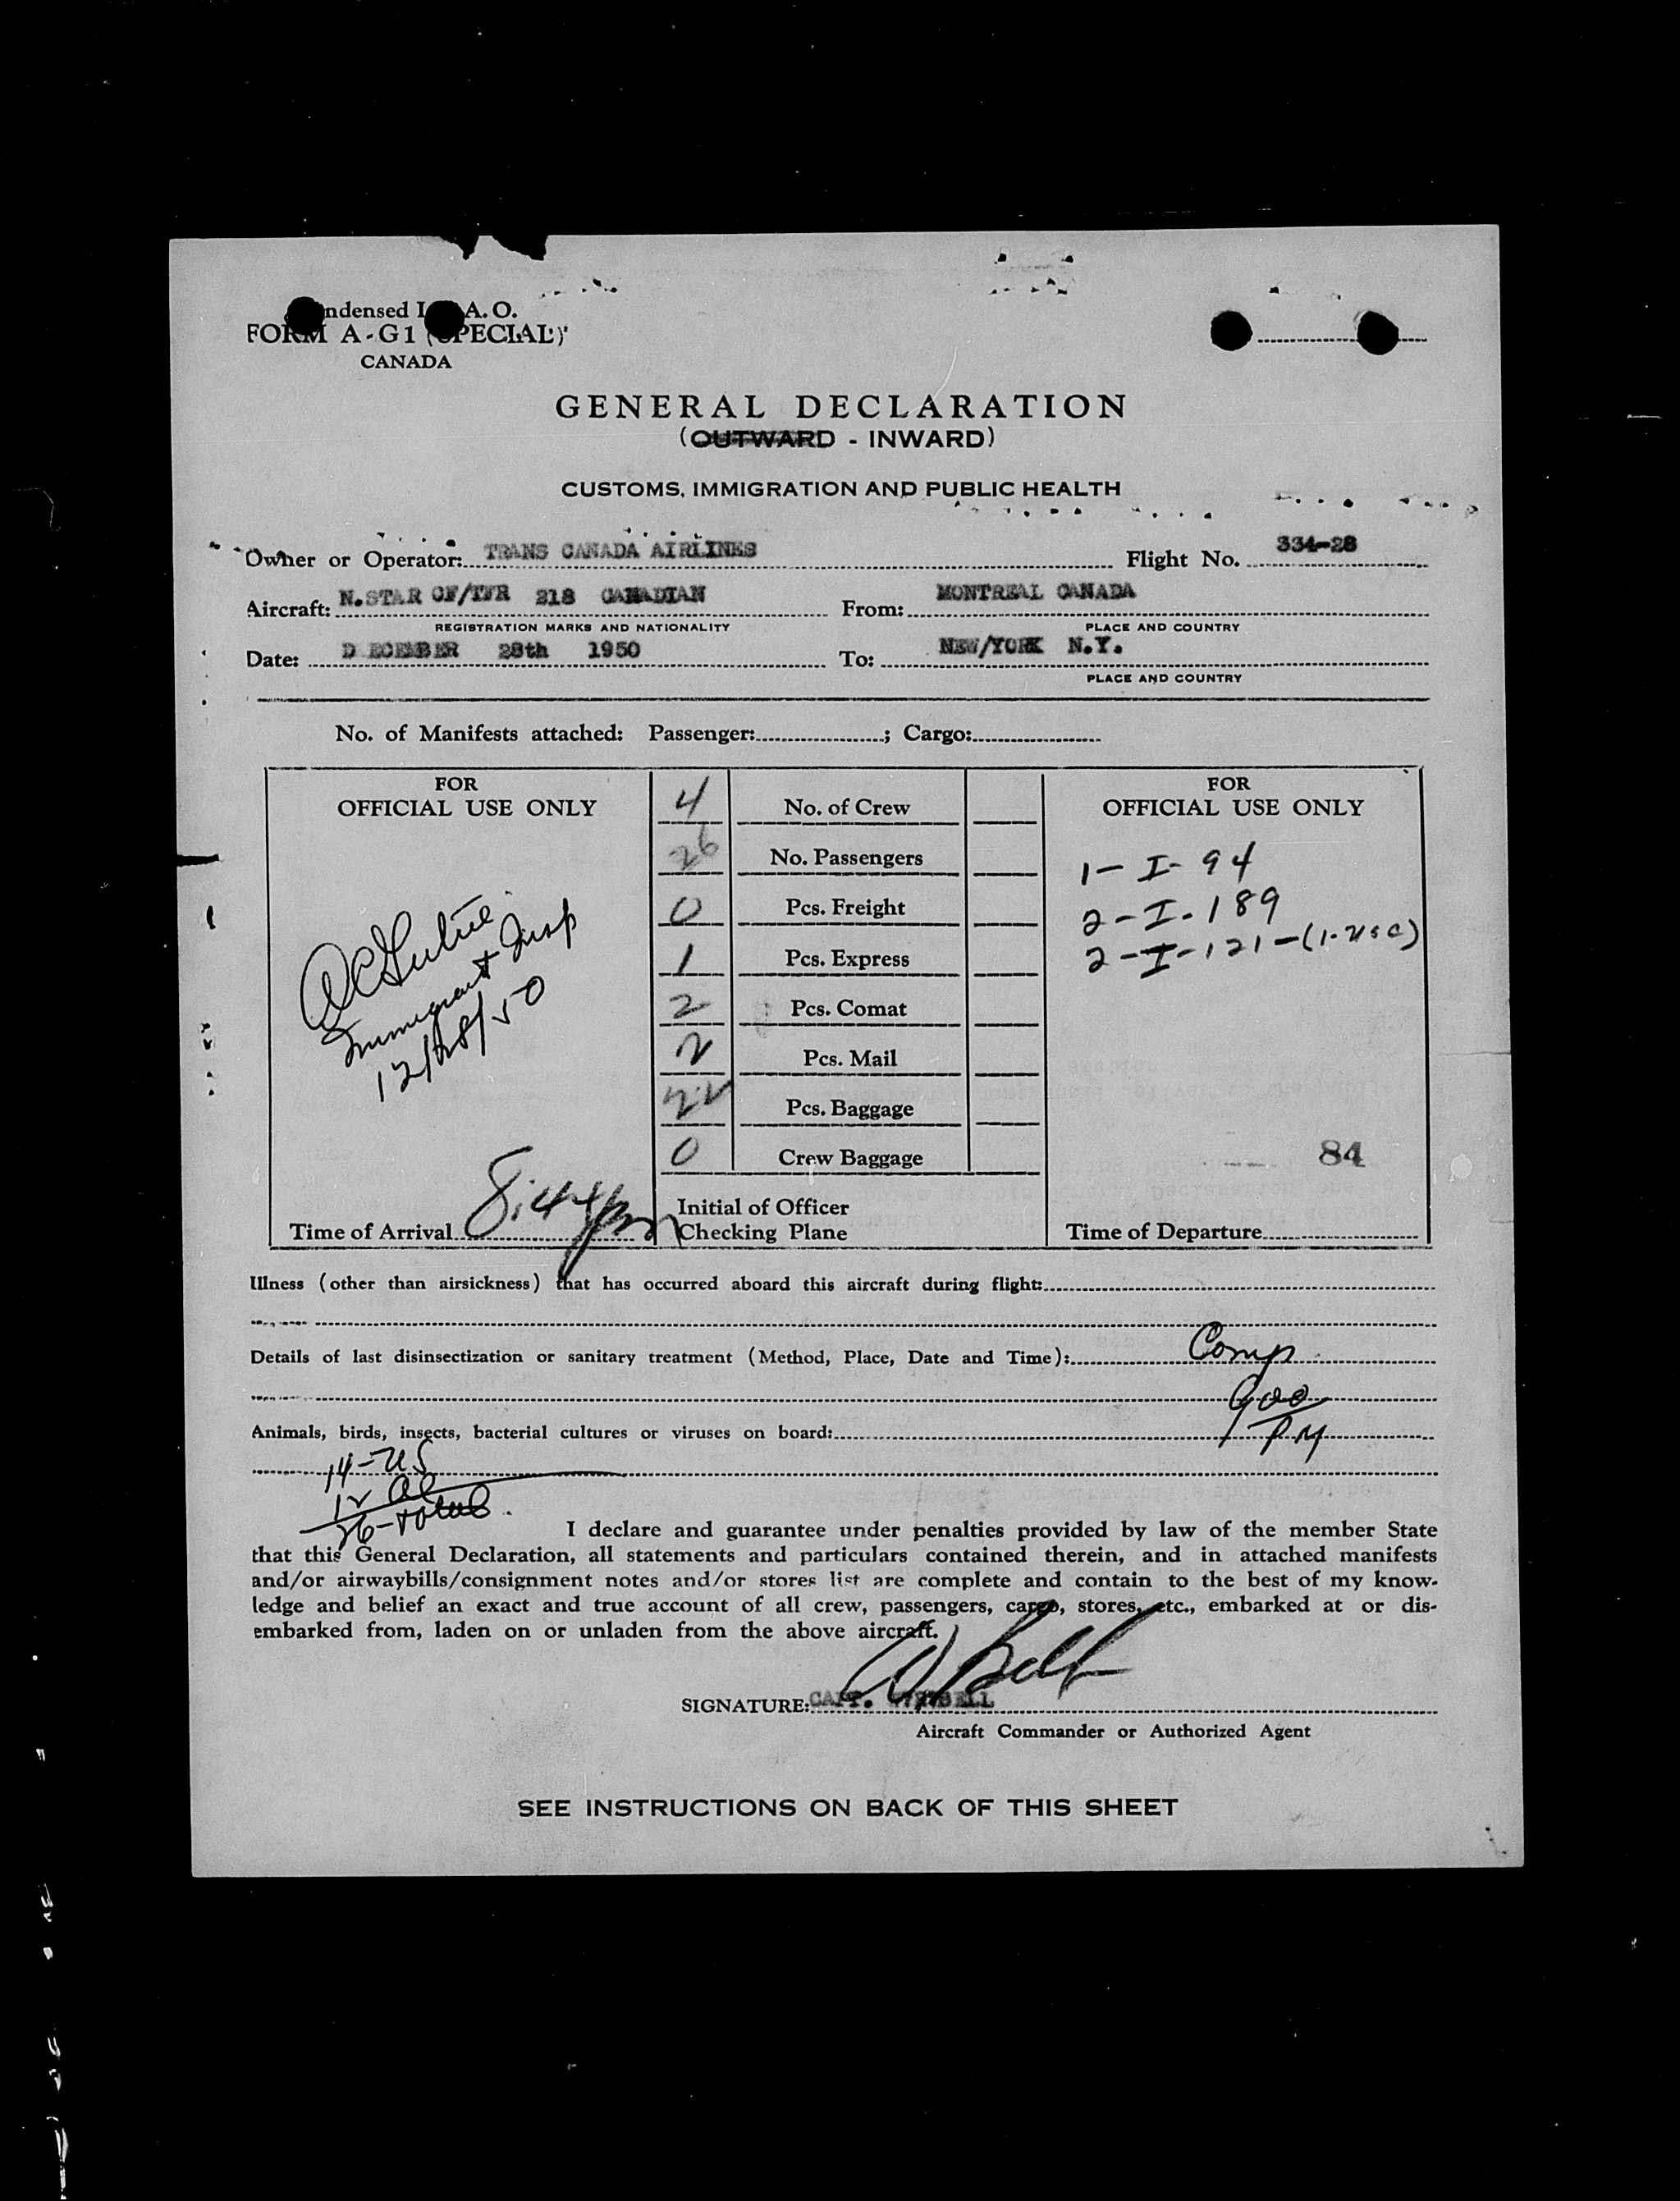 ndensed I A. O.
FORM A-G1 (SPECIAL)
CANADA
GENERAL DECLARATION
(OUTWARD - INWARD)
CUSTOMS, IMMIGRATION AND PUBLIC HEALTH
Owner or Operator: TRANS CANADA AIRLINES Flight No. 334-28
Aircraft: N.STAR CF/TFR 218 CANADIAN From: MONTREAL CANADA
REGISTRATION MARKS AND NATIONALITY PLACE AND COUNTRY
Date: D ECEMBER 28th 1950 To: NEW/YORK N.Y.
PLACE AND COUNTRY
No. of Manifests attached: Passenger: ; Cargo:
FOR
OFFICIAL USE ONLY
Immigrant Insp
12/28/50
Time of Arrival 8:44pm
4 No. of Crew
26 No. Passengers
0 Pcs. Freight
1 Pcs. Express
2 Pcs. Comat
2 Pcs. Mail
Pcs. Baggage
0 Crew Baggage
Initial of Officer
Checking Plane
FOR
OFFICIAL USE ONLY
1-I-94
2-I-189
2-I-121-(1-USC)
84
Time of Departure
Illness (other than airsickness) that has occurred aboard this aircraft during flight:
Details of last disinsectization or sanitary treatment (Method, Place, Date and Time): Comp
900
PM
Animals, birds, insects, bacterial cultures or viruses on board:
14-US
12 al
26-total.
I declare and guarantee under penalties provided by law of the member State
that this General Declaration, all statements and particulars contained therein, and in attached manifests
and/or airwaybills/consignment notes and/or stores list are complete and contain to the best of my know-
ledge and belief an exact and true account of all crew, passengers, cargo, stores, etc., embarked at or dis-
embarked from, laden on or unladen from the above aircraft.
W Bell
SIGNATURE: CAPT. BELL
Aircraft Commander or Authorized Agent
SEE INSTRUCTIONS ON BACK OF THIS SHEET